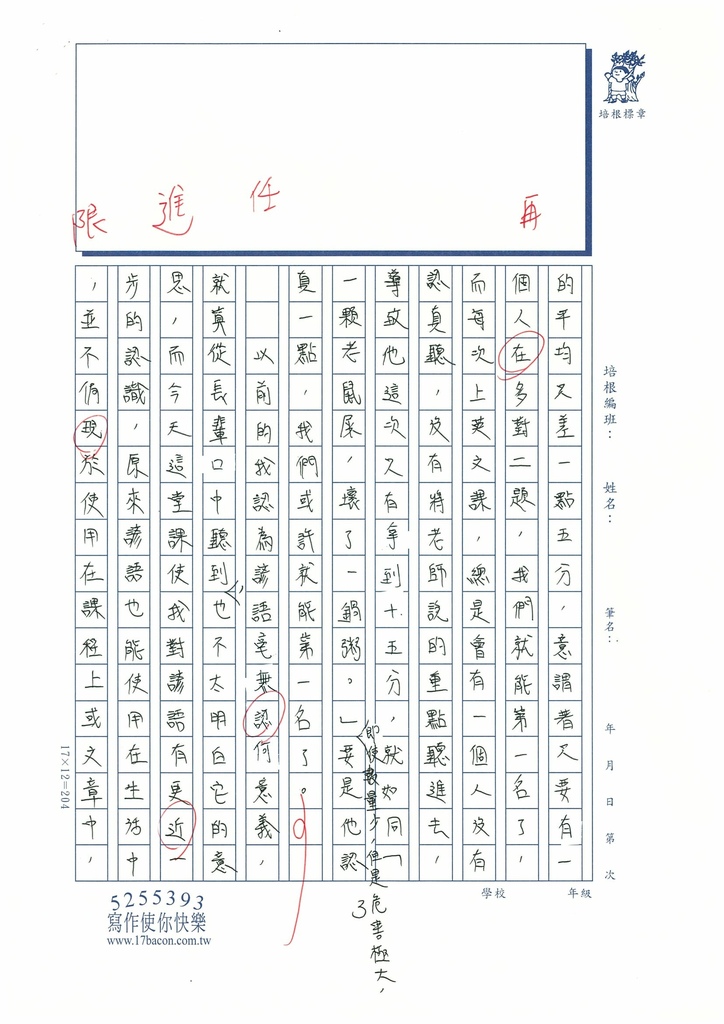 再
任
進
限
培根標章
培根編班：
姓名：
筆名：
年 月 日 第 次
學校
年級
的平均只差一點五分，意謂著只要有一
個人在多對二題，我們就能第一名了，
而每次上英文課，總是會有一個人沒有
認真聽，沒有將老師說的重點聽進去，
導致他這次只有拿到十五分，就如同「
一顆老鼠屎，壞了一鍋粥。」要是他認
即使數量少，但是危害極大，
3
真一點，我們或許就能第一名了。
以前的我認為諺語毫無認何意義，
就算從長輩口中聽到，也不太明白它的意
思，而今天這堂課使我對諺語有更近一
步的認識，原來諺語也能使用在生活中
，並不侷現於使用在課程上或文章中，
17×12=204
5255393
寫作使你快樂
www.17bacon.com.tw